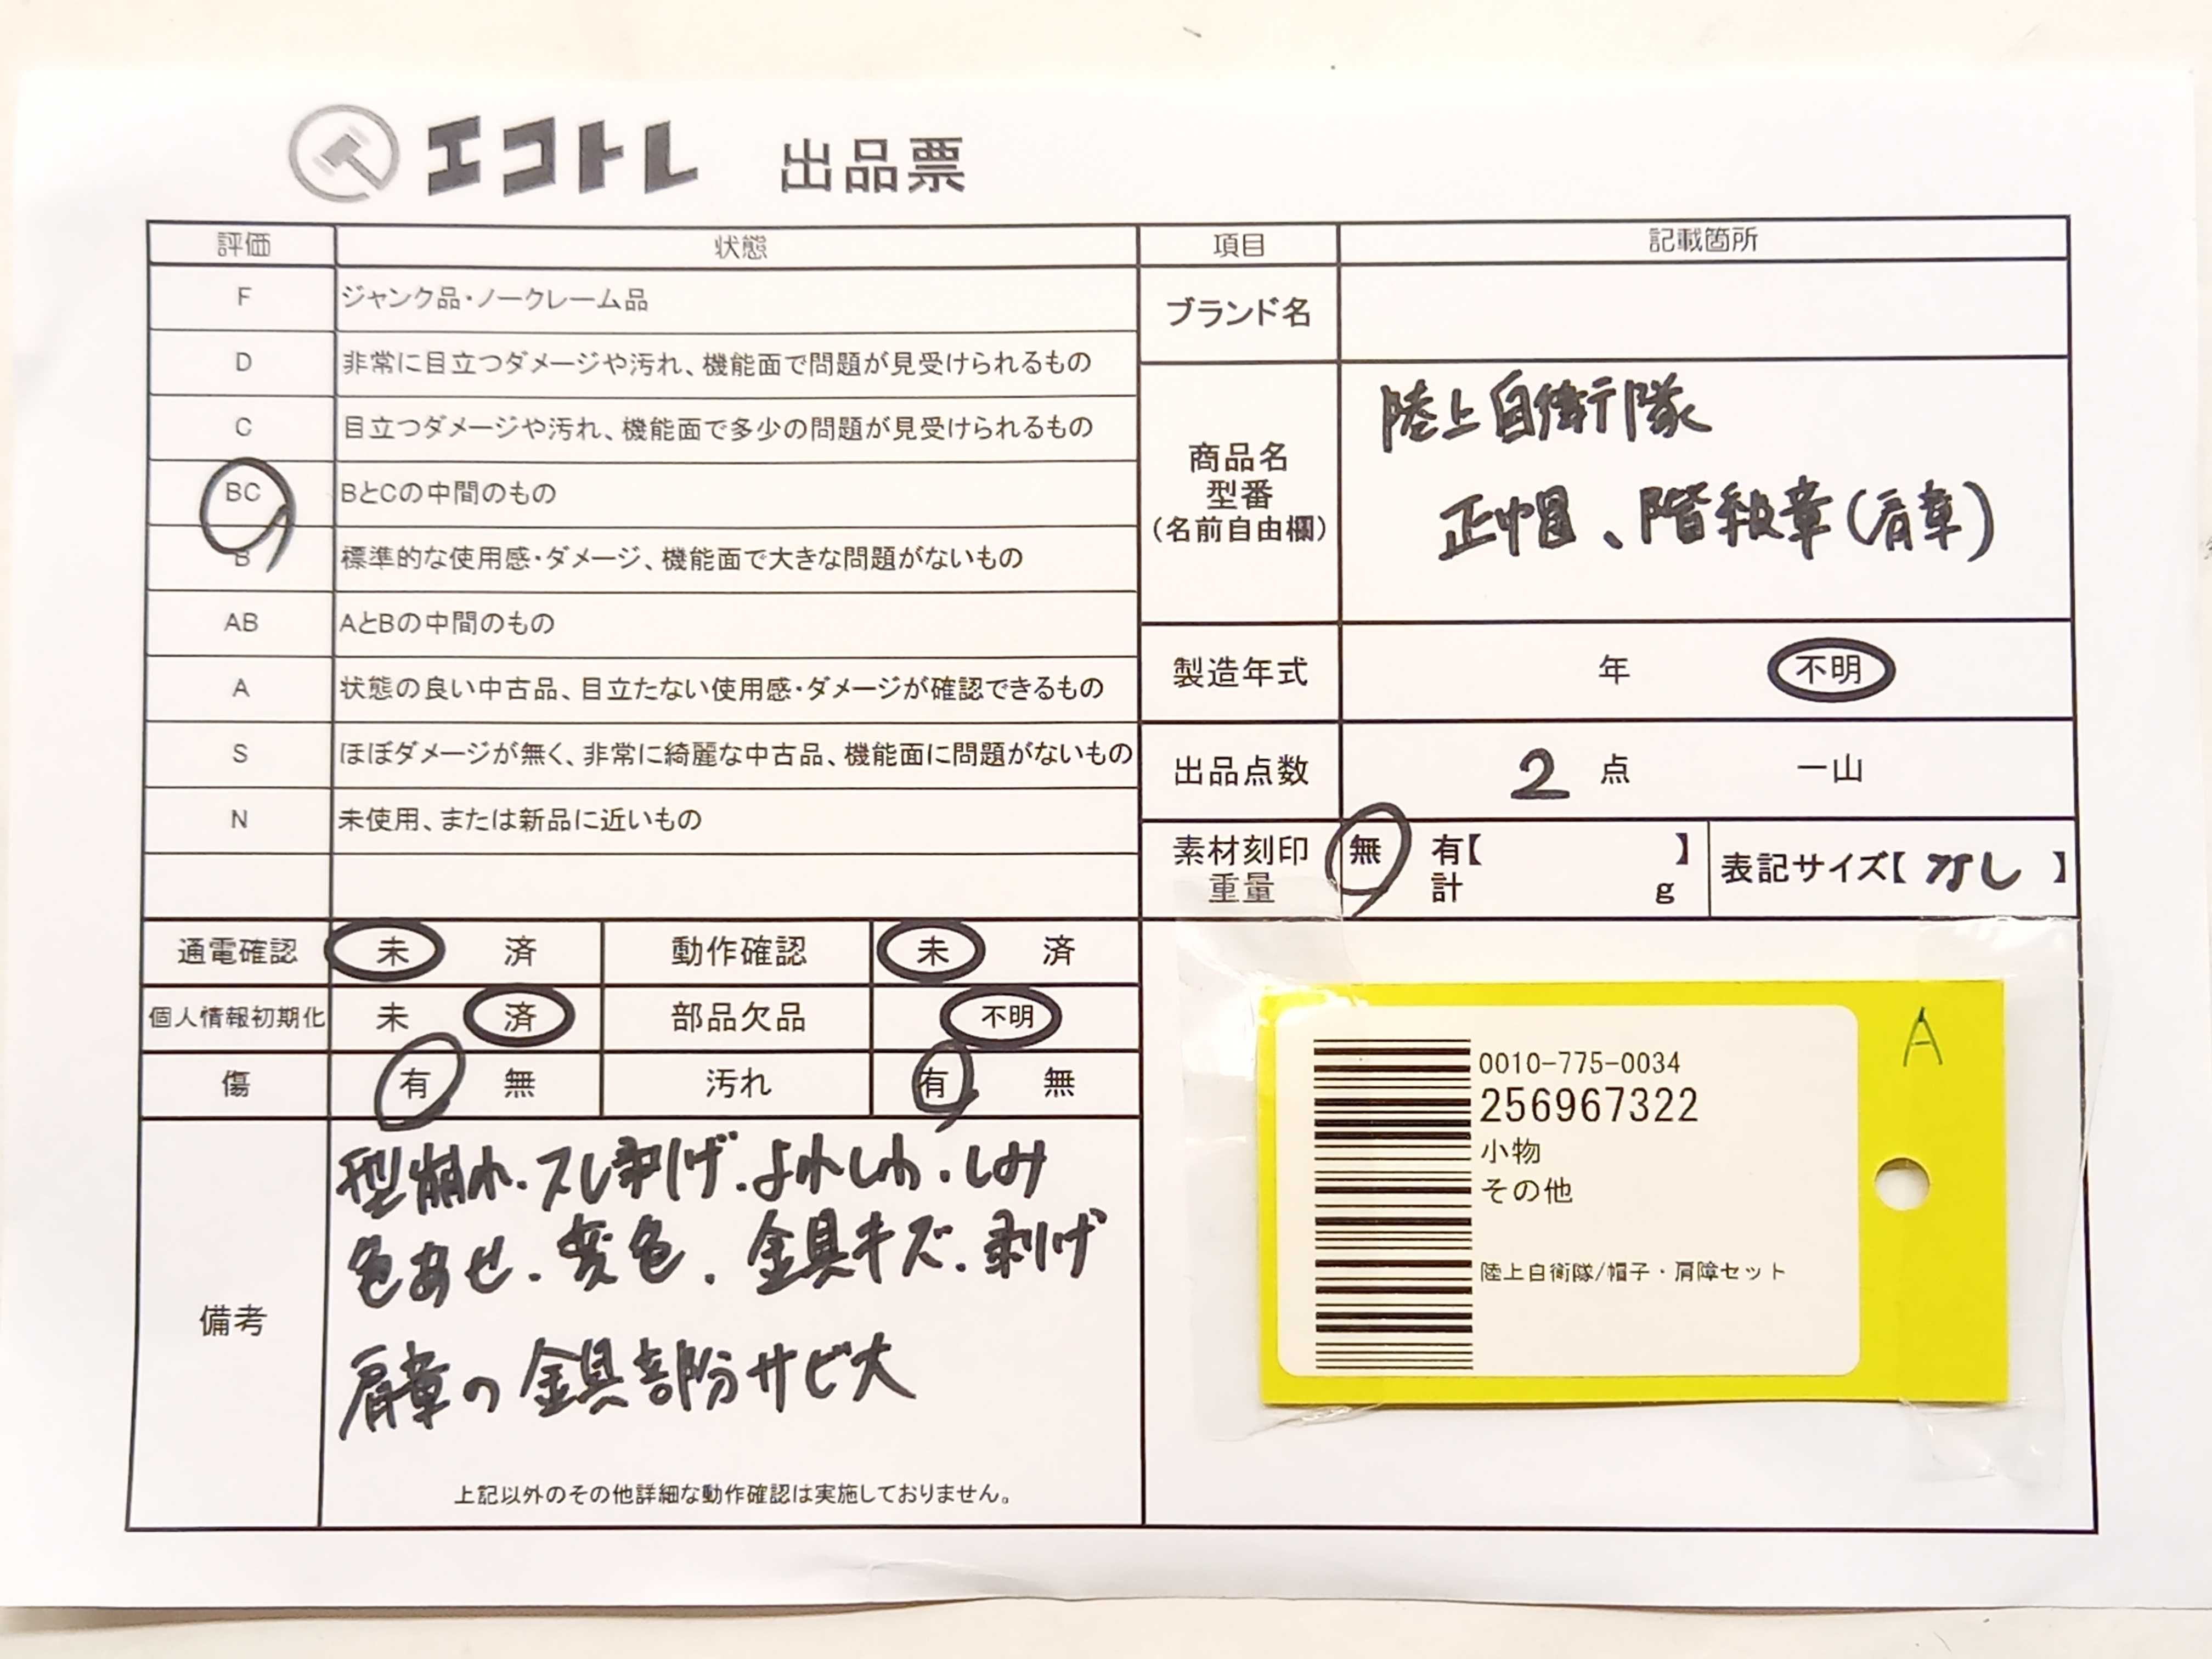 エコトレ 出品票
評価 状態
F ジャンク品・ノークレーム品
D 非常に目立つダメージや汚れ、機能面で問題が見受けられるもの
C 目立つダメージや汚れ、機能面で多少の問題が見受けられるもの
BC BとCの中間のもの
B 標準的な使用感・ダメージ、機能面で大きな問題がないもの
AB AとBの中間のもの
A 状態の良い中古品、目立たない使用感・ダメージが確認できるもの
S ほぼダメージが無く、非常に綺麗な中古品、機能面に問題がないもの
N 未使用、または新品に近いもの
通電確認 未 済 動作確認 未 済
個人情報初期化 未 済 部品欠品 不明
傷 有 無 汚れ 有 無
備考
型崩れ.スレ剥げ.よれしわ.しみ
色あせ.変色.金具キズ.剥げ
肩章の金具部分サビ大
上記以外のその他詳細な動作確認は実施しておりません。
項目 記載箇所
ブランド名
商品名
型番
(名前自由欄)
陸上自衛隊
正帽、階級章(肩章)
製造年式 年 不明
出品点数 2 点 一山
素材刻印 無 有【 】
重量 計 g
表記サイズ【 なし 】
A
0010-775-0034
256967322
小物
その他
陸上自衛隊/帽子・肩障セット